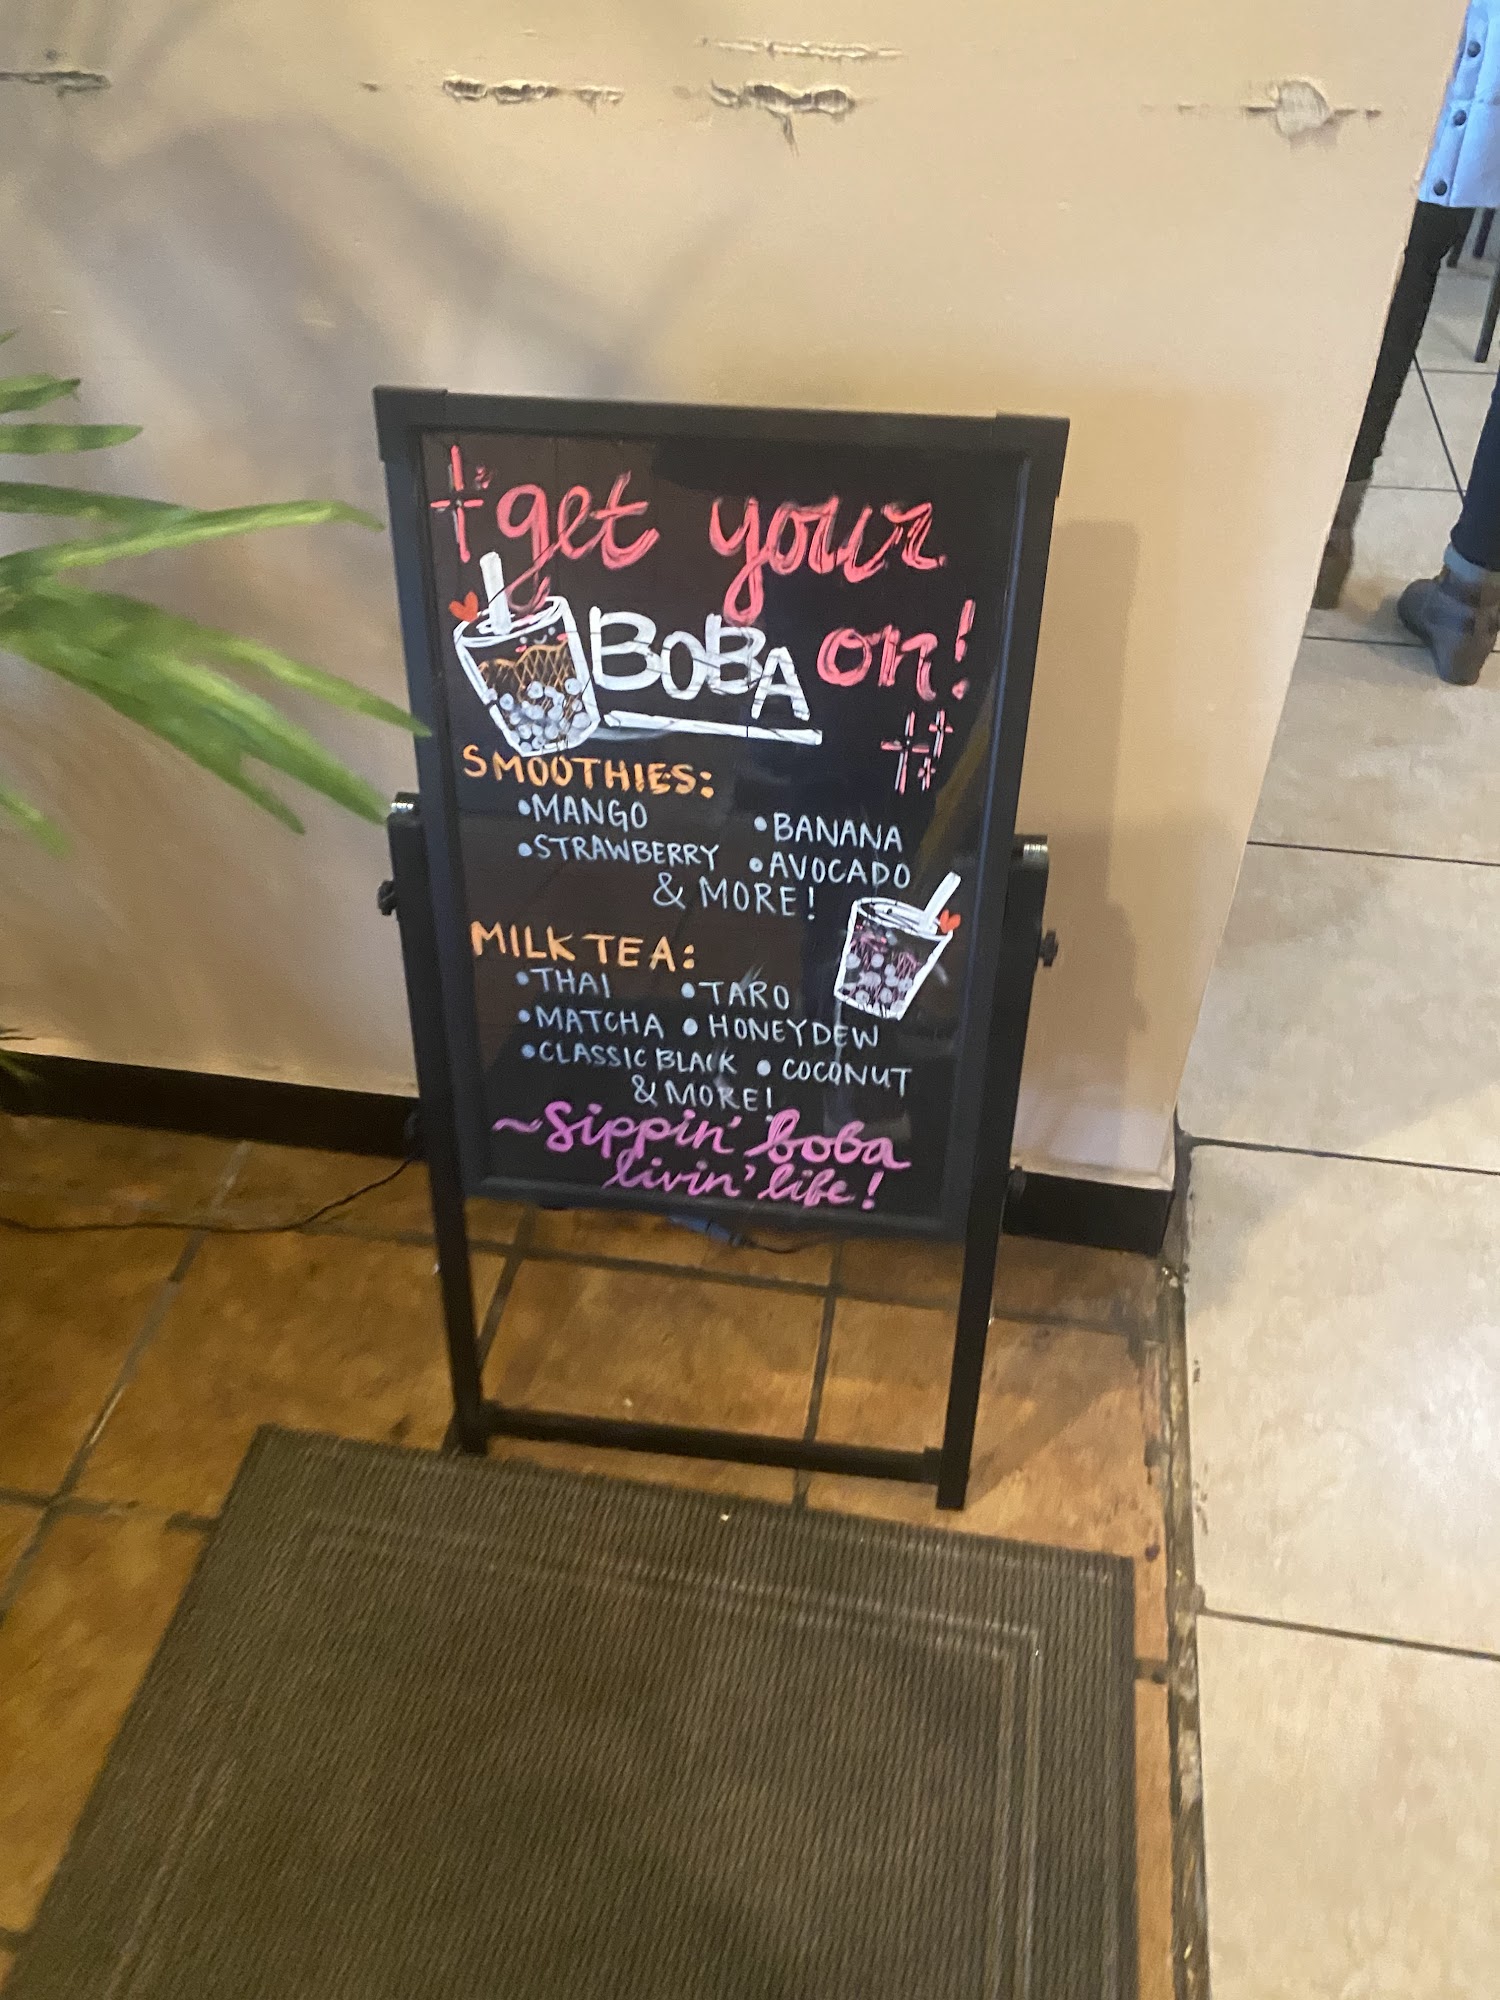 get your
BOBA on!
SMOOTHIES:
•MANGO •BANANA
•STRAWBERRY •AVOCADO
& MORE!
MILK TEA:
•THAI •TARO
•MATCHA •HONEYDEW
•CLASSIC BLACK •COCONUT
& MORE!
~Sippin' boba
livin' life!